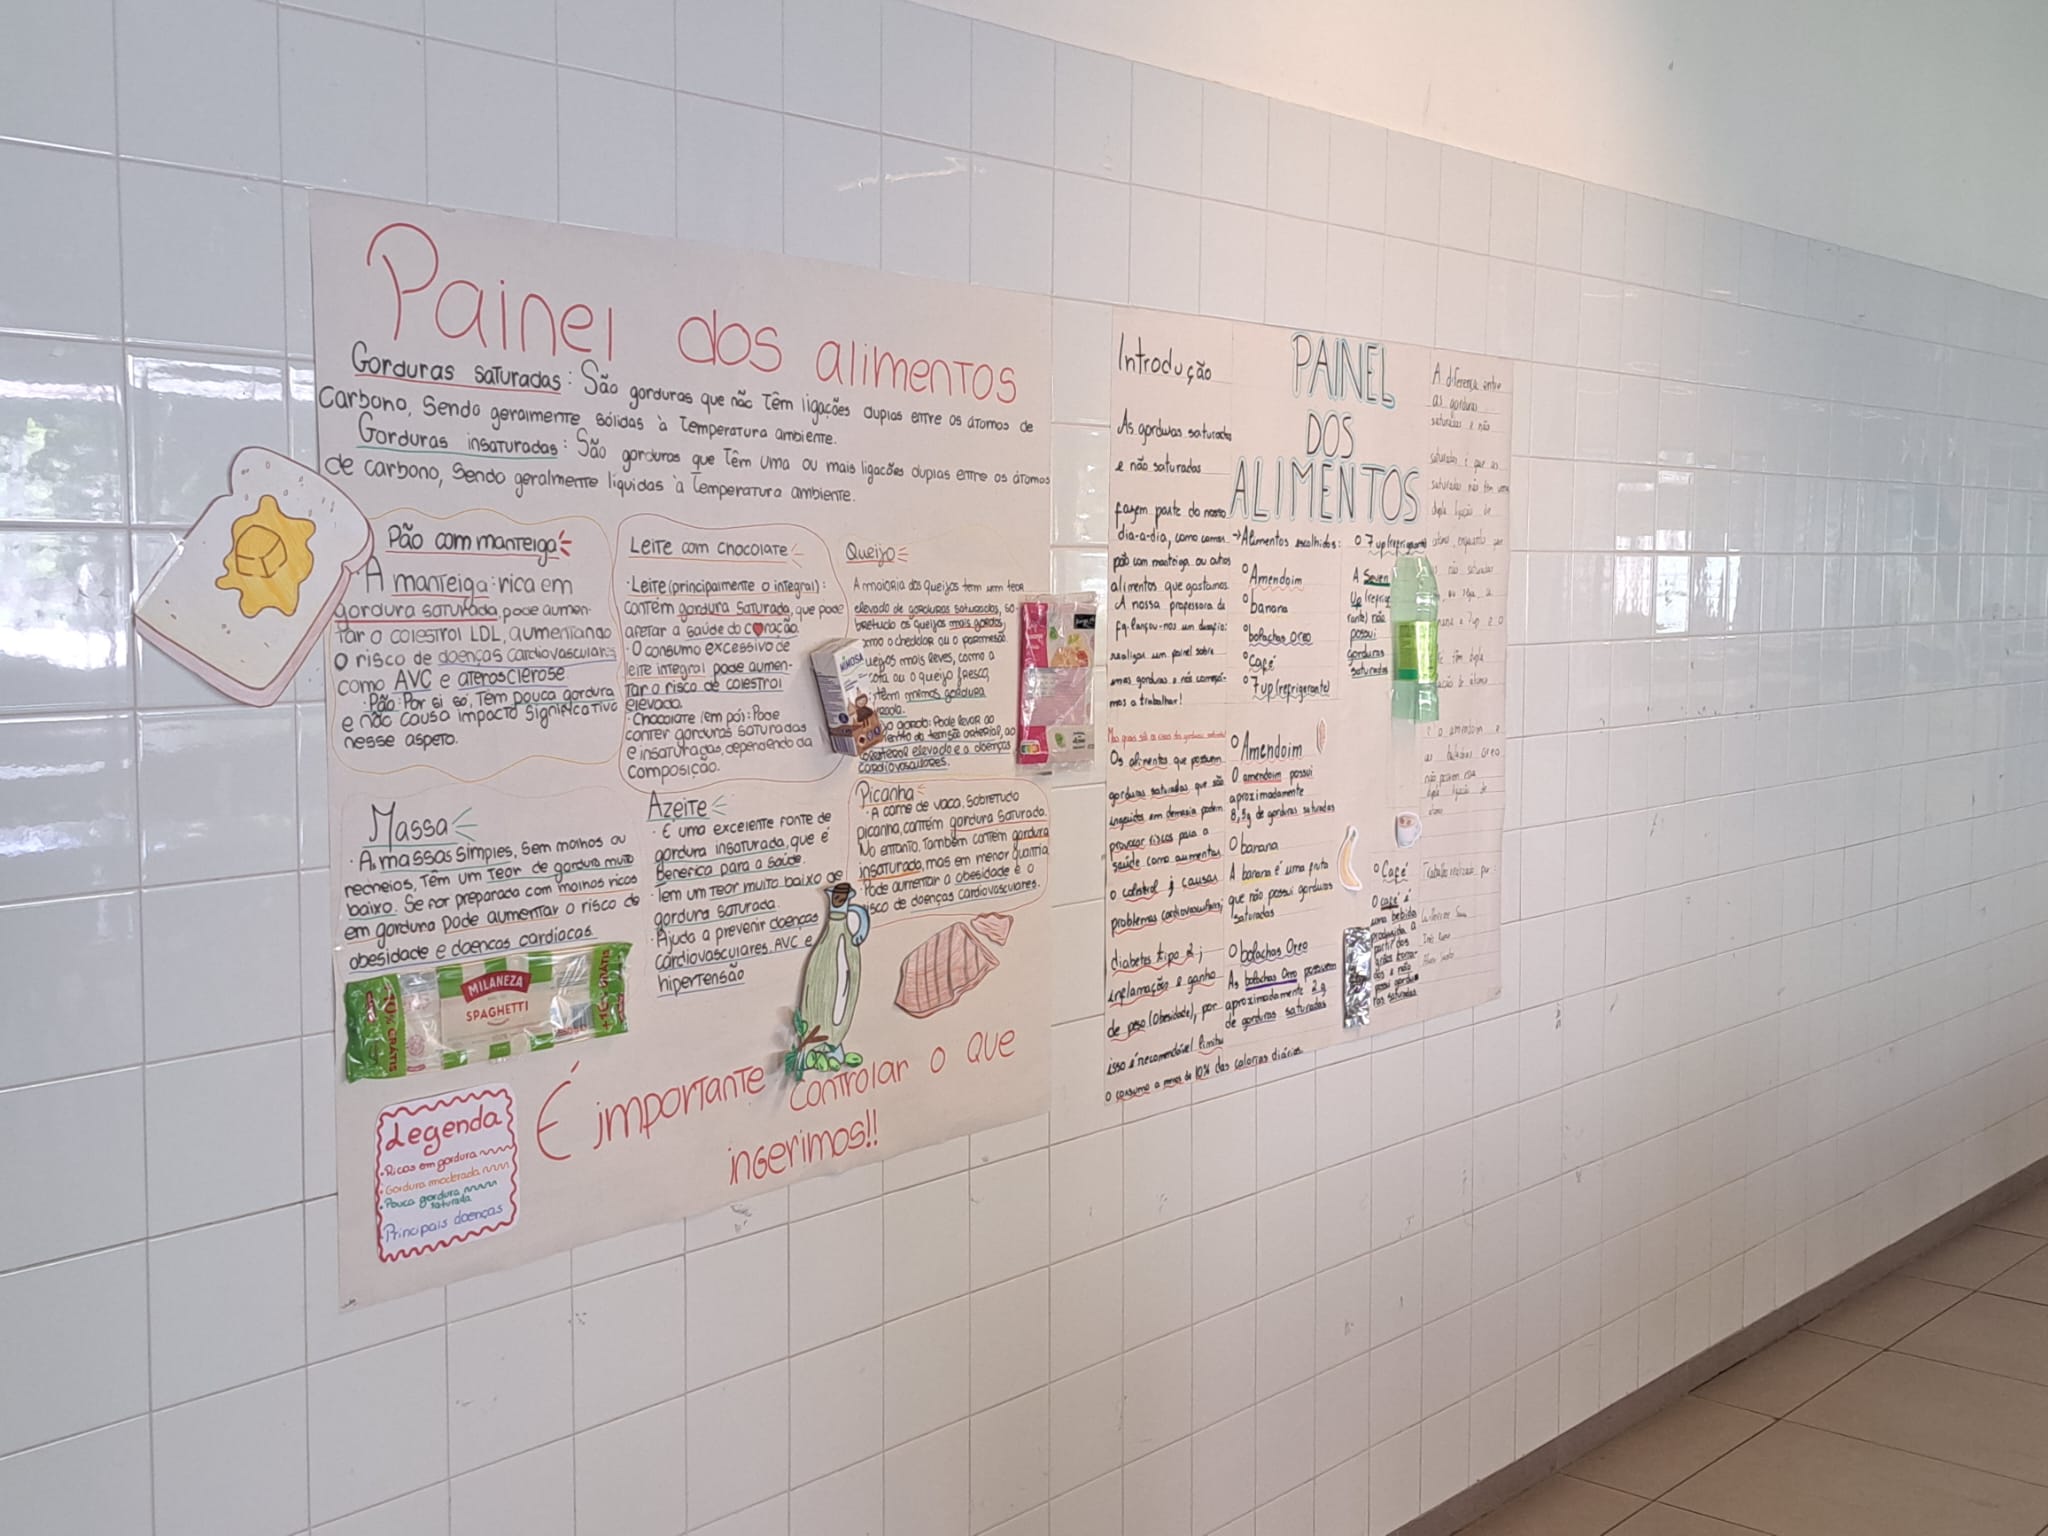 Painel dos alimentos
Gorduras saturadas: São gorduras que não Têm ligações duplas entre os átomos de
Carbono, Sendo geralmente sólidas à Temperatura ambiente.
Gorduras insaturadas: São gorduras que Têm uma ou mais ligações duplas entre os átomos
de carbono, Sendo geralmente líquidas à Temperatura ambiente.
Pão com manteiga
A manteiga: rica em
gordura saturada, pode aumen-
tar o colestrol LDL, aumentando
o risco de doenças cardiovasculares
como AVC e aterosclerose.
Pão: Por si só, Tem pouca gordura
e não causa impacto significativo
nesse aspeto.
Leite com chocolate
· Leite (principalmente o integral):
contém gordura saturada, que pode
afetar a saúde do coração.
· O consumo excessivo de
leite integral pode aumen-
tar o risco de colestrol
elevado.
· Chocolate (em pó): Pode
conter gorduras saturadas
e insaturadas, dependendo da
composição.
Queijo
A maioria dos queijos tem um teor
elevado de gorduras saturadas, so-
bretudo os queijos mais gordos,
como o cheddar ou o parmesão
queijos mais leves, como a
ou o queijo fresco,
menos gordura
gordo: Pode levar ao
da tensão arterial, ao
colesterol elevado e a doenças
cardiovasculares.
MIMOSA
Massa
· As massas simples, sem molhos ou
recheios, têm um teor de gordura muito
baixo. Se for preparada com molhos ricos
em gordura pode aumentar o risco de
obesidade e doenças cardíacas.
Azeite
· É uma excelente fonte de
gordura insaturada, que é
benéfica para a saúde.
Tem um teor muito baixo de
gordura saturada.
· Ajuda a prevenir doenças
cardiovasculares, AVC e
hipertensão
Picanha
· A carne de vaca, sobretudo
picanha, contém gordura saturada.
No entanto, também contém gordura
insaturada, mas em menor quantia
· Pode aumentar a obesidade e o
risco de doenças cardiovasculares.
MILANEZA
SPAGHETTI
10% GRÁTIS
É importante controlar o que
ingerimos!!
Legenda
· Ricos em gordura
· Gordura moderada
· Pouca gordura
saturada
· Principais doenças
Introdução
As gorduras saturadas
e não saturadas
fazem parte do nosso
dia-a-dia, como comer
pão com manteiga ou outros
alimentos que gostamos.
A nossa professora de
fq lançou-nos um desafio:
realizar um painel sobre
essas gorduras e nós começá-
mos a trabalhar!
Os alimentos que possuem
gorduras saturadas que são
ingeridos em demasia podem
provocar riscos para a
saúde como aumentar
o colestrol; causar
problemas cardiovasculares;
diabetes tipo 2;
inflamações e ganho
de peso (obesidade), por
isso é recomendável limitar
o consumo a menos de 10% das calorias diárias.
PAINEL
DOS
ALIMENTOS
→ Alimentos escolhidos:
Amendoim
banana
bolachas Oreo
Café
7 up (refrigerante)
Amendoim
O amendoim possui
aproximadamente
8,5g de gorduras saturadas
banana
A banana é uma fruta
que não possui gorduras
saturadas
bolachas Oreo
As bolachas Oreo possuem
aproximadamente 2 g
de gorduras saturadas
7 up (refrigerante)
A Seven
Up (refrige
rante) não
possui
gorduras
saturadas
Café
O café é
uma bebida
produzida a
partir dos
grãos
e não
possui gordu
ras saturadas
A diferença entre
as gorduras
saturadas e não
saturadas é que as
saturadas não têm uma
dupla ligação de
Trabalho realizado por: